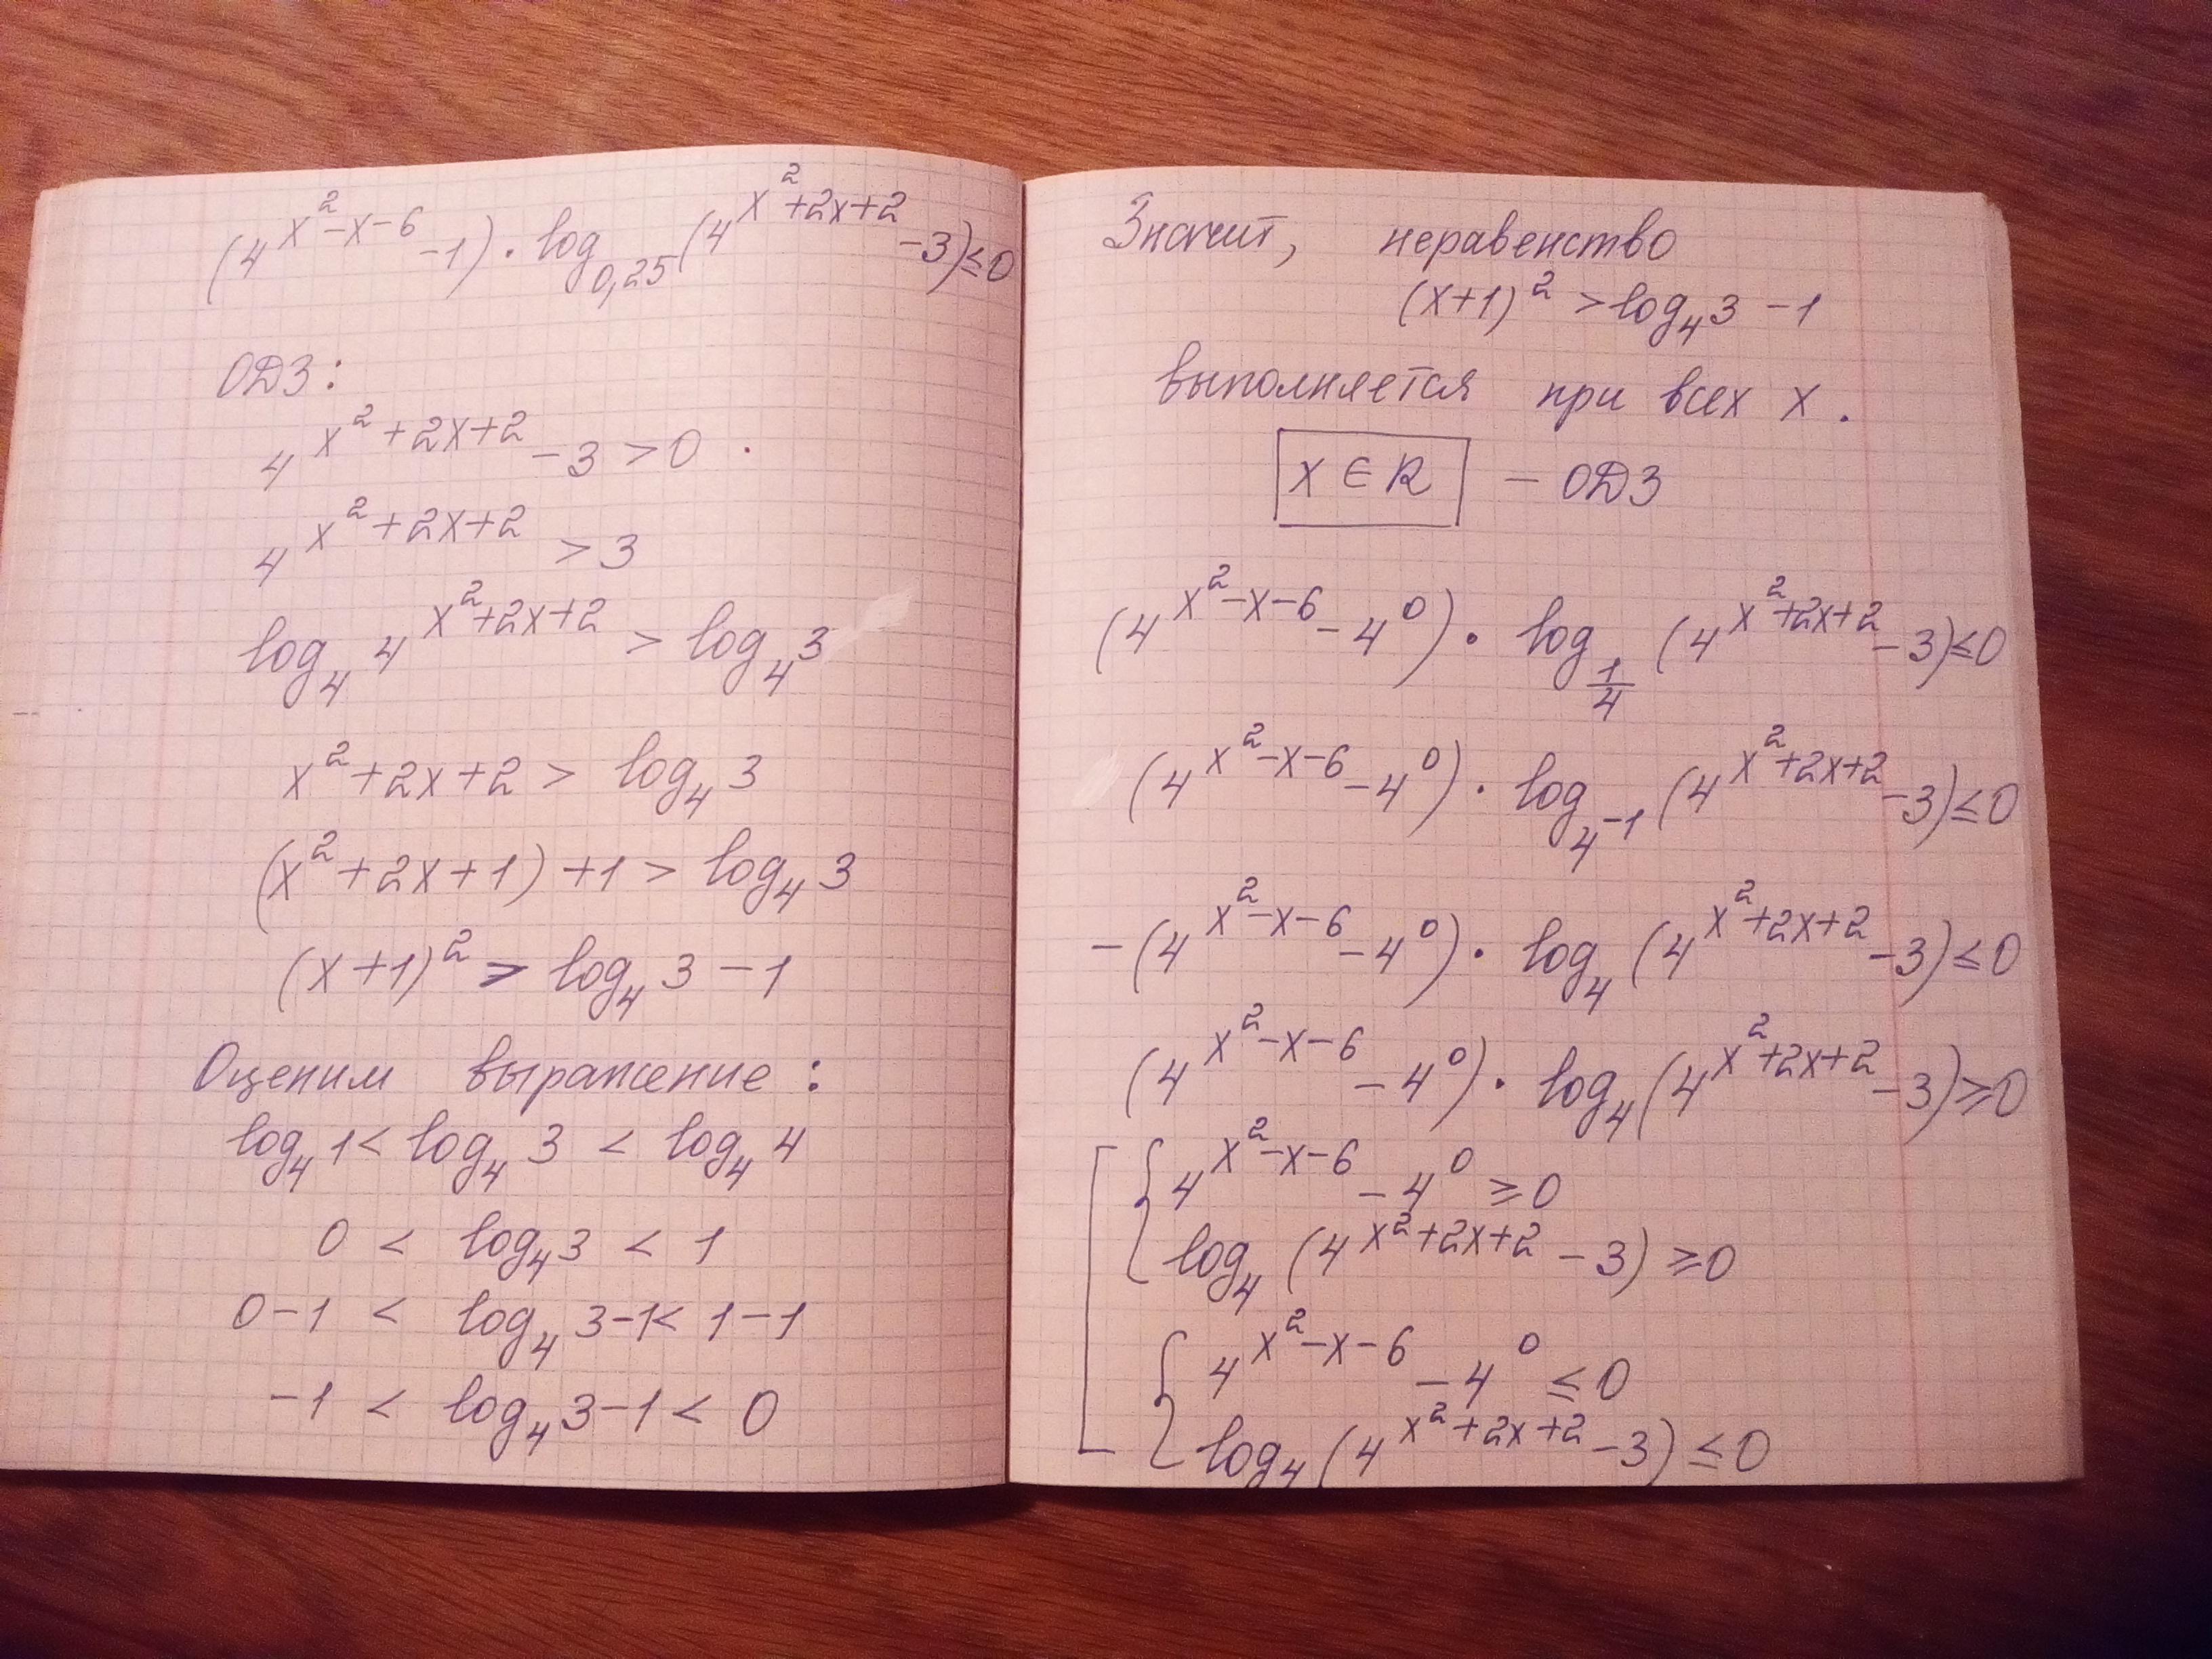 (4^{x^2-x-6} -1) · log_{0,25}(4^{x^2+2x+2} -3) ≤ 0
ОДЗ:
4^{x^2+2x+2} - 3 > 0
4^{x^2+2x+2} > 3
log_4 4^{x^2+2x+2} > log_4 3
x^2 + 2x + 2 > log_4 3
(x^2 + 2x + 1) + 1 > log_4 3
(x+1)^2 > log_4 3 - 1
Оценим выражение:
log_4 1 < log_4 3 < log_4 4
0 < log_4 3 < 1
0-1 < log_4 3-1 < 1-1
-1 < log_4 3-1 < 0
Значит, неравенство
(x+1)^2 > log_4 3 - 1
выполняется при всех x.
x ∈ R - ОДЗ
(4^{x^2-x-6} - 4^0) · log_{1/4} (4^{x^2+2x+2} - 3) ≤ 0
(4^{x^2-x-6} - 4^0) · log_{4^{-1}} (4^{x^2+2x+2} - 3) ≤ 0
-(4^{x^2-x-6} - 4^0) · log_4 (4^{x^2+2x+2} - 3) ≤ 0
(4^{x^2-x-6} - 4^0) · log_4 (4^{x^2+2x+2} - 3) ≥ 0
4^{x^2-x-6} - 4^0 ≥ 0
log_4 (4^{x^2+2x+2} - 3) ≥ 0
4^{x^2-x-6} - 4^0 ≤ 0
log_4 (4^{x^2+2x+2} - 3) ≤ 0